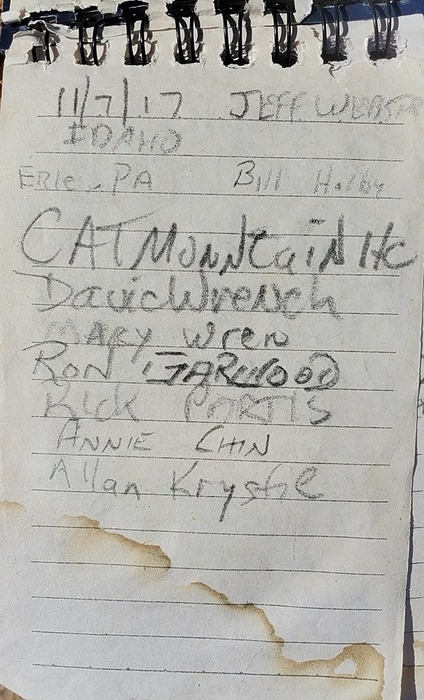 11/7/17 JEFF
IDAHO
Erie, PA Bill
CAT MounNtaiN HC
David Wrench
MARY Wren
RON GARWOOD
Rick PARTIS
ANNIE CHIN
Allan